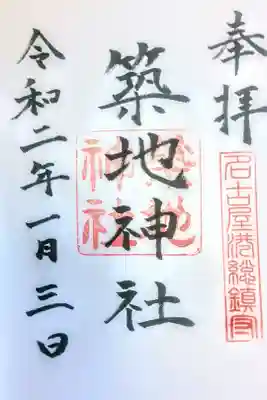 奉拝
名古屋港総鎮守
築地神社
築地
神社
令和二年一月三日